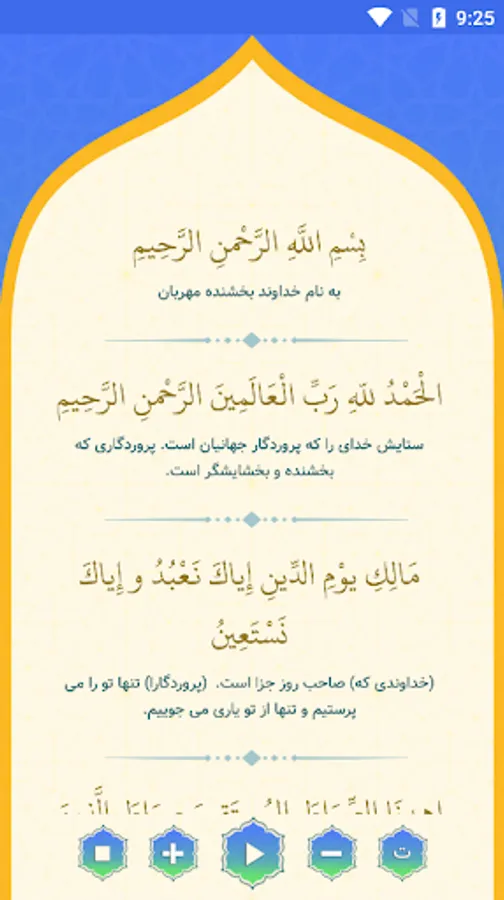 9:25
بِسْمِ اللَّهِ الرَّحْمنِ الرَّحِيمِ
به نام خداوند بخشنده مهربان
الْحَمْدُ للّهِ رَبِّ الْعَالَمِينَ الرَّحْمنِ الرَّحِيمِ
ستایش خدای را که پروردگار جهانیان است. پروردگاری که
بخشنده و بخشایشگر است.
مَالِكِ يوْمِ الدِّينِ إِياكَ نَعْبُدُ و إِياكَ
نَسْتَعِينُ
(خداوندی که) صاحب روز جزا است. (پروردگارا) تنها تو را می
پرستیم و تنها از تو یاری می جوییم.
ت